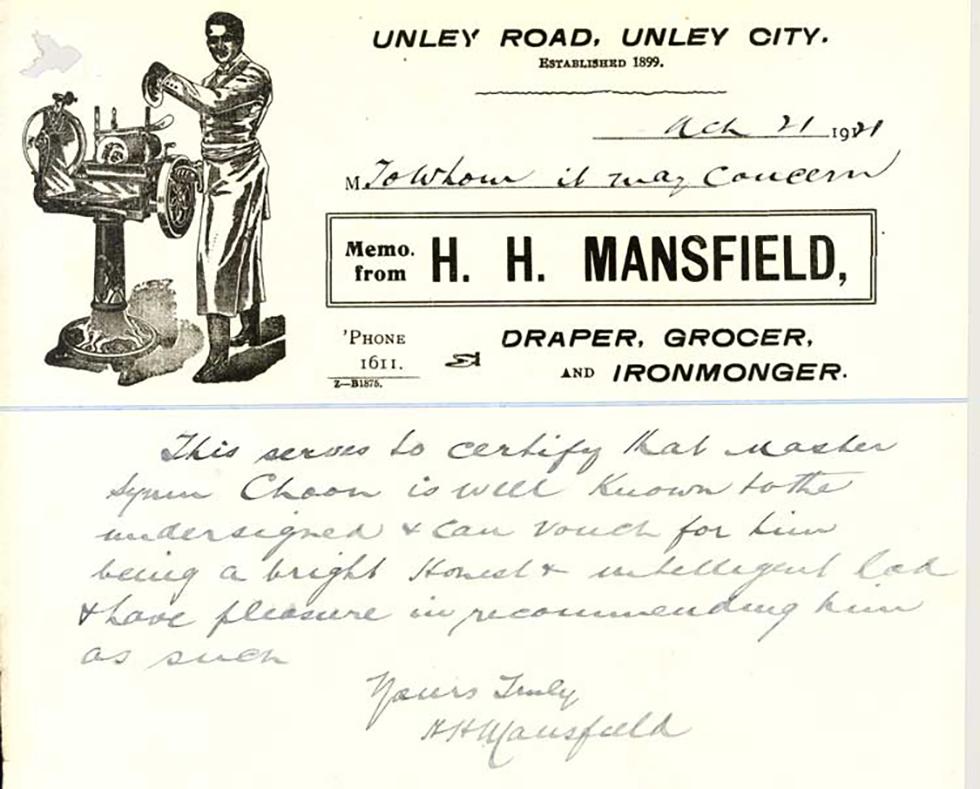 UNLEY ROAD, UNLEY CITY.
ESTABLISHED 1899.
Och 21 1921
M. To Whom it may Concern
Memo. from H. H. MANSFIELD,
'PHONE 1611.
Z—B1875.
DRAPER, GROCER,
AND IRONMONGER.
This serves to certify that Master
Symn Choon is well Known to the
undersigned & can vouch for him
being a bright Honest & intelligent lad
& have pleasure in recommending him
as such
Yours Truly
HHMansfield